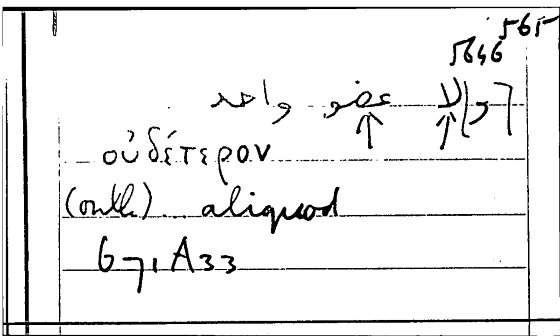 565
5646
[و]لا عضو واحد
οὐδέτερον
(om.) aliquod
671A33